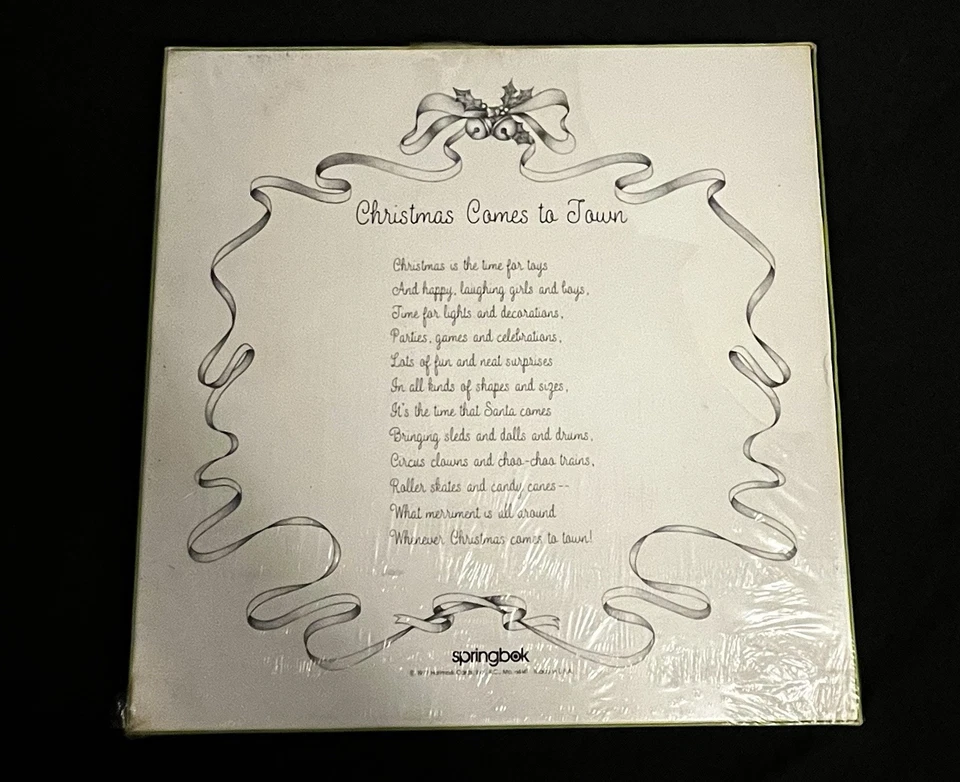 Christmas Comes to Town
Christmas is the time for toys
And happy, laughing girls and boys,
Time for lights and decorations,
Parties, games and celebrations,
Lots of fun and neat surprises
In all kinds of shapes and sizes,
It's the time that Santa comes
Bringing sleds and dolls and drums,
Circus clowns and choo-choo trains,
Roller skates and candy canes--
What merriment is all around
Whenever Christmas comes to town!
springbok
Hallmark Cards, Inc., K.C., Mo.